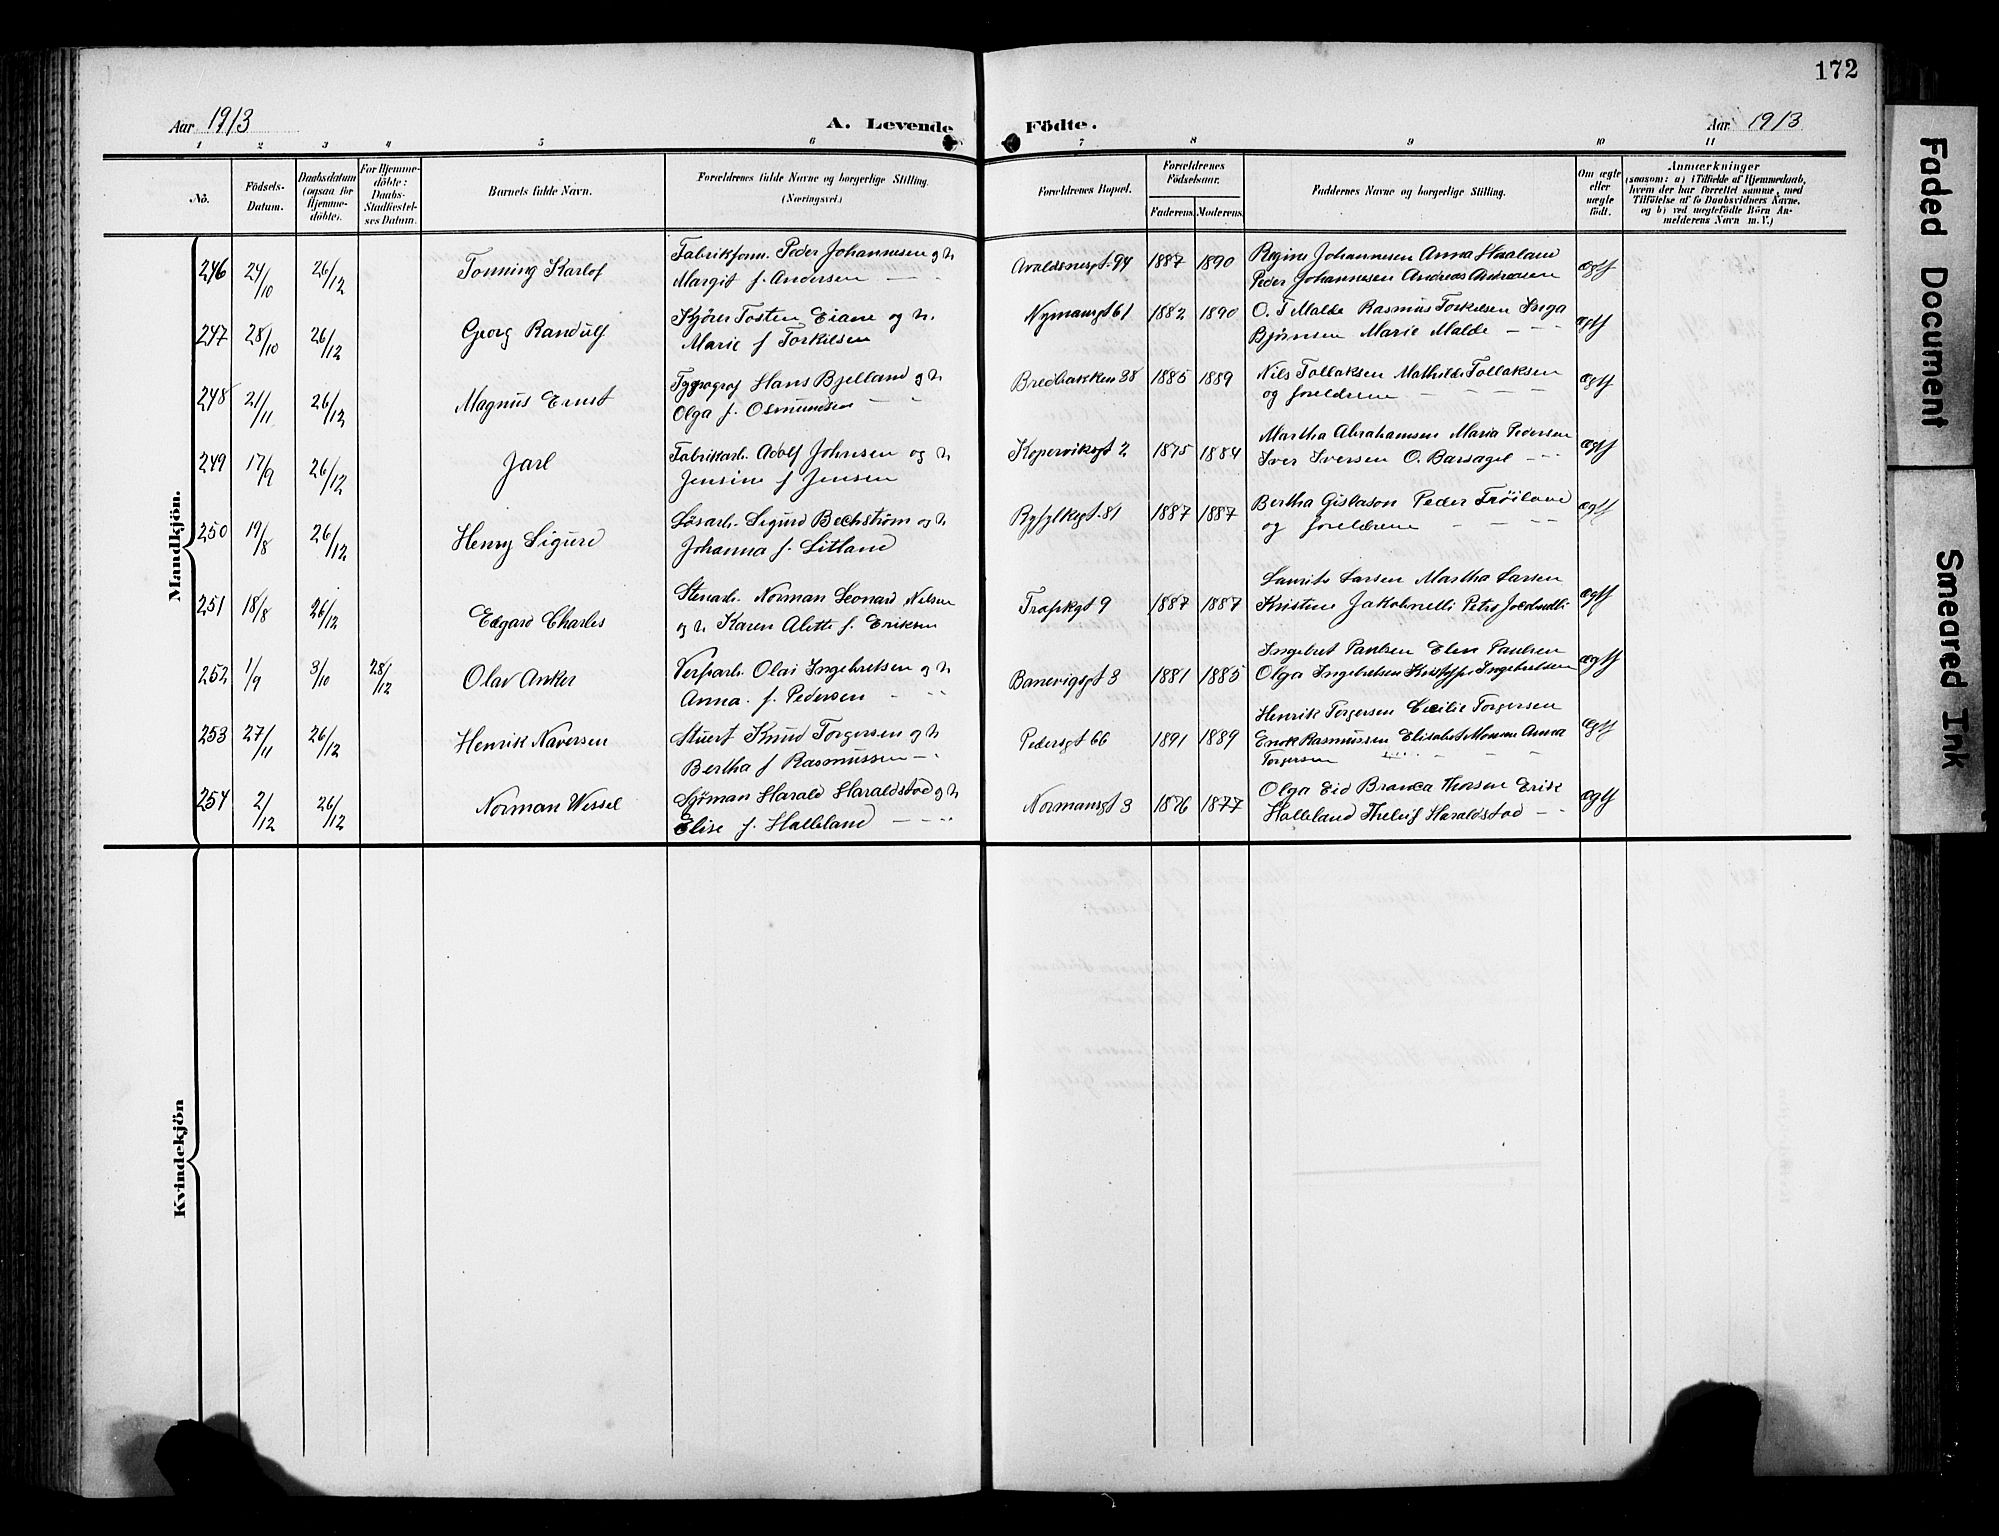 172
Aar 1913 A. Levende Födte. Aar 1913
1 2 3 4 5 6 7 8 9 10 11
No.
Födsels-
Datum.
Daabsdatum
(ogsaa for
Hjemme-
döbte).
For Hjemme-
döbte:
Daabs-
Stadfæstel-
ses Datum.
Barnets fulde Navn.
Forældrenes fulde Navne og borgerlige Stilling.
(Næringsvei.)
Forældrenes Bopæl.
Forældrenes
Födselsaar.
Faderens. Moderens.
Faddernes Navne og borgerlige Stilling.
Om ægte
eller
uægte
födt.
Anmærkninger
(saasom: a) i Tilfælde af Hjemmedaab,
hvem der har forrettet samme, med
Tilföielse af to Daabsvidners Navne,
og b) ved uægtefödte Börn An-
melderens Navn m. V.)
Mandkjön.
246 24/10 26/12 Tonning Karlof
Fabrikform. Peder Johannesen og h.
Margit f. Andersen
Avaldsnesgt. 94 1887 1890
Regine Johannesen Anna Haaland
Peder Johannesen Andreas Andreasen
ægtf
247 28/10 26/12 Georg Randulf
Kjører Tosten Eiane og h.
Marie f Torkilsen
Nymansgt 61 1882 1890
O. T Malde Rasmus Torkelsen Inga
Bjørnsen Marie Malde
ægtf
248 21/11 26/12 Magnus Ernst
Typograf Hans Bjelland og h
Olga f. Osmundsen
Bredbakken 38 1885 1889
Nils Tollaksen Mathilde Tollaksen
og foreldrene
ægtf
249 17/9 26/12 Jarl
Fabrikarb. Adolf Johnsen og h
Jensine f Jensen
Kopervikgt 2 1875 1884
Martha Abrahamsen Maria Pedersen
Iver Iversen O. Barsagel
ægtf
250 19/8 26/12 Henry Sigurd
Løsarb. Sigurd Bechstrøm og h
Johanna f. Litland
Ryfylkegt. 81 1887 1887
Bertha Gislason Peder Trøiland
og foreldrene
ægtf
251 18/8 26/12 Edgard Charles
Stenarb. Norman Leonard Nilsen
og h. Karen Alette f. Eriksen
gt 9 1887 1887
Laurits Larsen Martha Larsen
Kristine Jakobnelli Petro
ægtf
252 1/9 3/10 28/12 Olav Anker
Verftarb. Olai Ingebretsen og h
Anna. f. Pedersen
Banevigsgt 3 1881 1885
Ingebret Paulsen Elen Paulsen
Olga Ingebretsen Kristoffer Ingebretsen
ægtf
253 27/11 26/12 Henrik Naversen
Stuert Knud Torgersen og h
Bertha f Rasmussen
Pedersgt 66 1891 1889
Henrik Torgersen Cecilie Torgersen
Enok Rasmussen Elisabet Monsen Anna
Torgersen
ægtf
254 2/12 26/12 Norman Wessel
Sjøman Harald Haraldstad og h
Elise f. Halleland
Normansgt 3 1876 1877
Olga Eid Branca Thorsen Erik
Halleland Theleif Haraldstad
ægtf
Kvindekjön
Faded Document
Smeared Ink